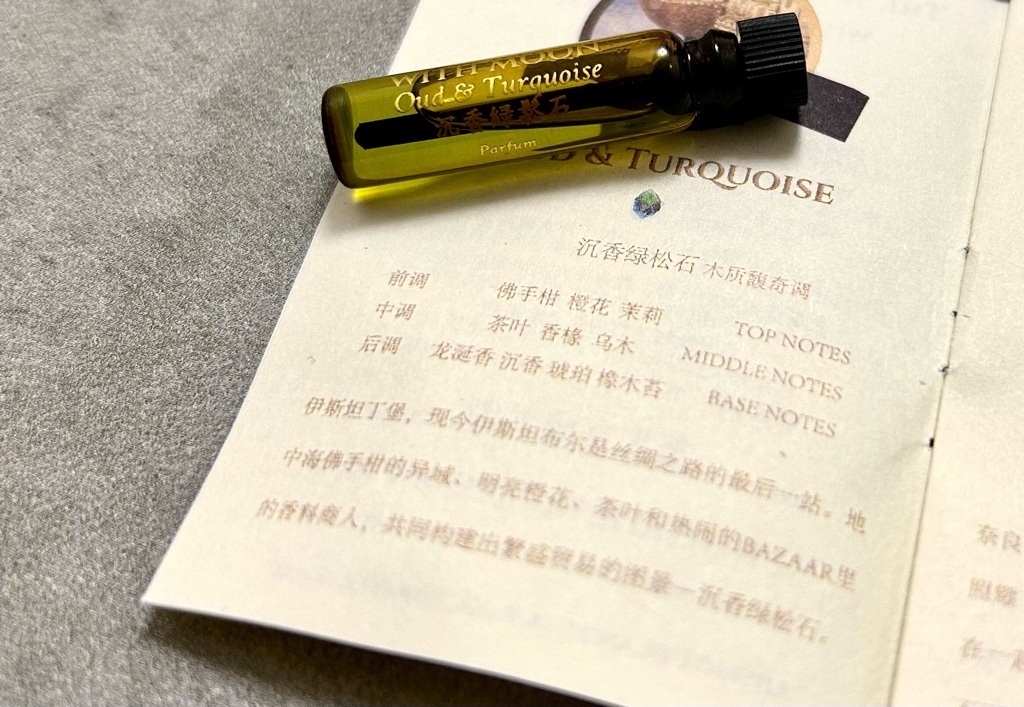 WITH MOON
Oud & Turquoise
沉香緑鬆石
Parfum
& TURQUOISE
沉香绿松石 木质馥奇调
前调 佛手柑 橙花 茉莉 TOP NOTES
中调 茶叶 香椽 乌木 MIDDLE NOTES
后调 龙涎香 沉香 琥珀 橡木苔 BASE NOTES
伊斯坦丁堡，现今伊斯坦布尔是丝绸之路的最后一站。地
中海佛手柑的异域、明亮橙花、茶叶和热闹的BAZAAR里
的香料商人，共同构建出繁盛贸易的图景—沉香绿松石。
奈良
照
在一起